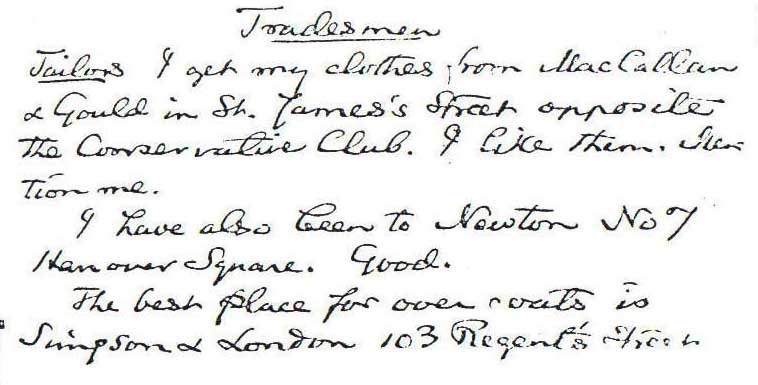 Tradesmen
Tailors I get my clothes from MacCallan
& Gould in St. James's Street opposite
the Conservative Club. I like them. Men
tion me.
I have also been to Newton No 7
Hanover Square. Good.
The best place for over coats is
Simpson & London 103 Regent's Street